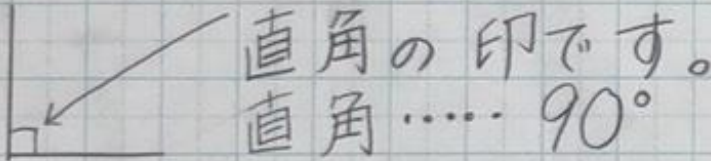 直角の印です。
直角‥‥‥90°